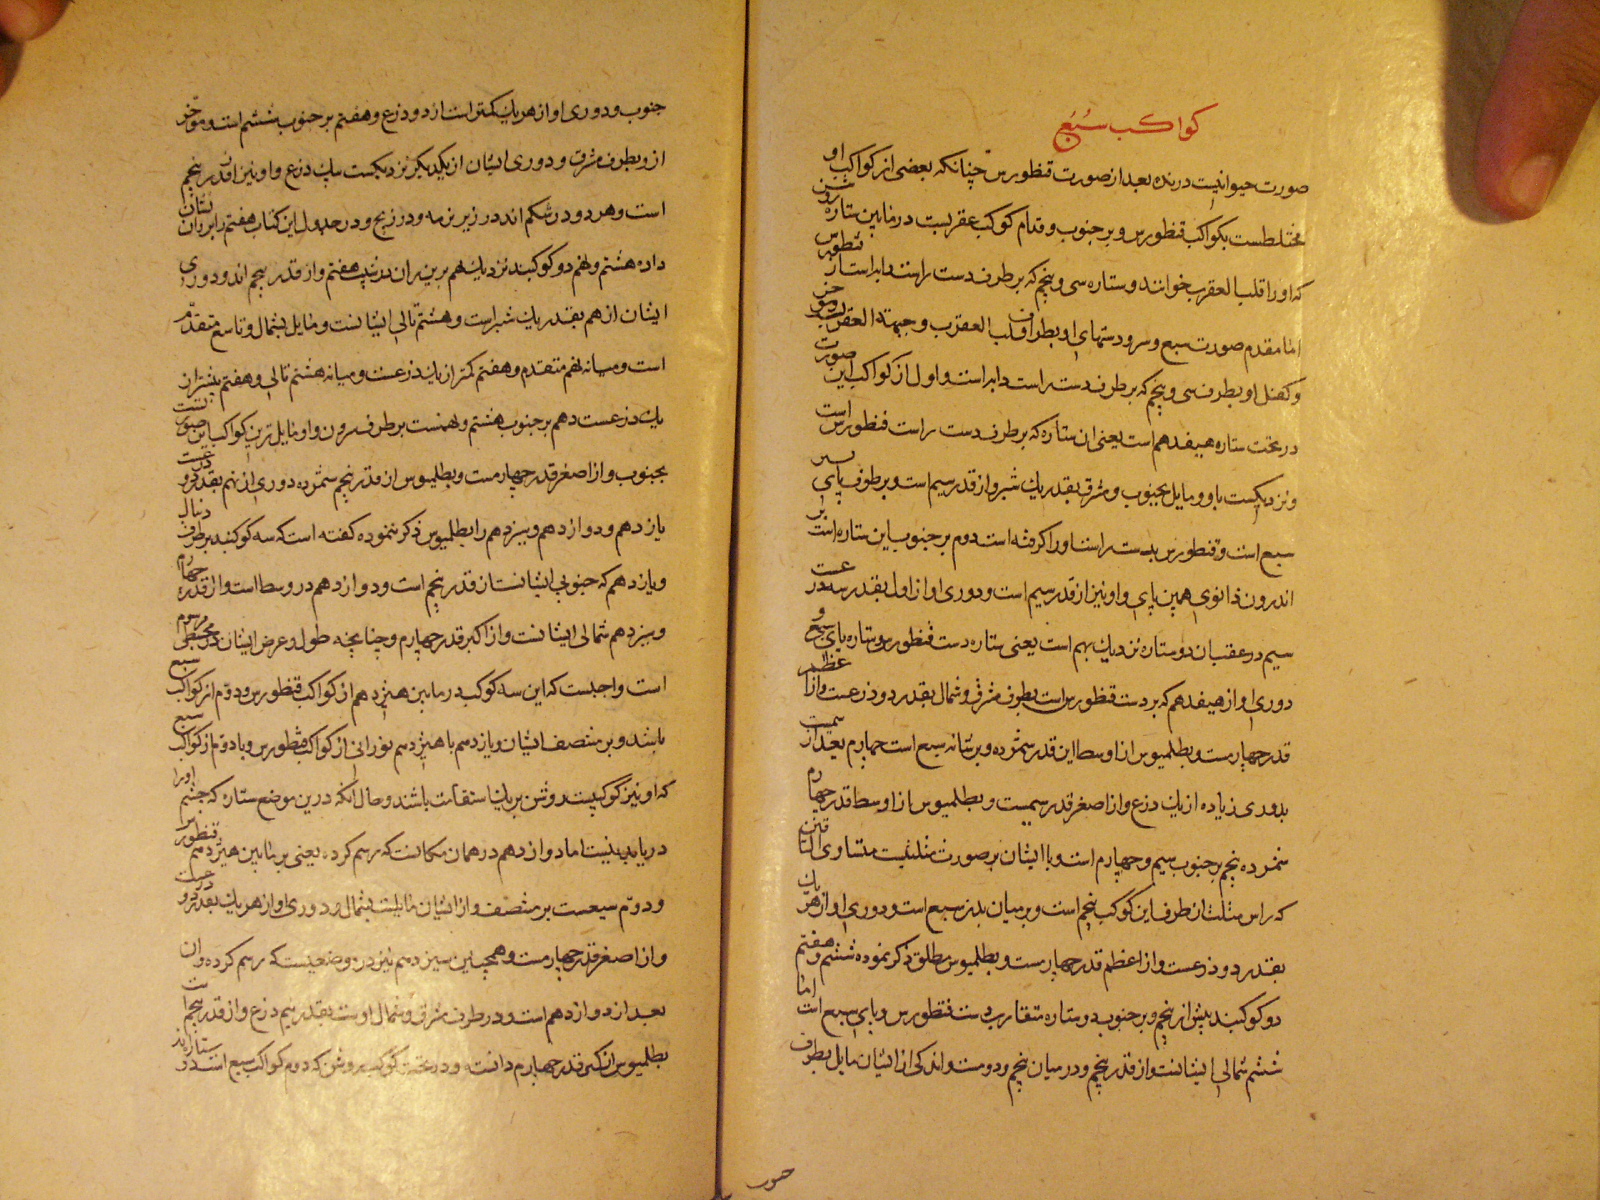 کواکب سبع
صورت حیوانیست درنده بعد از صورت قنطورس چنانکه بعضی از کواکب او
مختلطست بکواکب قنطورس و بر جنوب و قدام کوکب عقربست در مابین ستاره روشن
که او را قلب العقرب خوانند و ستاره سی و پنجم که بر طرف دست راست دابه است از قنطورس
اما مقدم صورت سبع و سر و دستهای او بطرف قلب العقرب و جبهة العقرب
و کفل او بطرف سی و پنجم که بر طرف دست راست دابه است و اول از کواکب این صورت
در تحت ستاره هیفدهم است یعنی ان ستاره که بر طرف دست راست قنطورس است
و نزدیکست باو و مایل بجنوب و مشرق بقدر یک شبر و از قدر سیم است و بر طرف پای
سبع است و قنطورس بدست راست او را کرفته است دوم بر جنوب این ستاره است بر
اندرون زانوی همین پای و او نیز از قدر سیم است و دوری او از اول بقدر سه ذرعست
سیم در عقب ان دو ستاره نزدیک بهم است یعنی ستاره دست قنطورس و ستاره پای سبع و
دوری او از هیفدهم که بر دست قنطورس است بطرف مشرق و شمال بقدر دو ذرعست و از اعظم
قدر چهارمست و بطلمیوس از اوسط این قدر شمرده و بر شانه سبع است چهارم بعد از سیمست
بدوری زیاده از یک ذرع و از اصغر قدر سیمست و بطلمیوس از اوسط قدر چهارم
شمرده پنجم بر جنوب سیم و چهارم است و با ایشان بر صورت مثلثیست متساوی الساقین
که راس مثلث از طرف این کوکب پنجم است و بر میان بدن سبع است و دوری او از هر یک
بقدر دو ذرعست و از اعظم قدر چهارمست و بطلمیوس مطلق ذکر نموده ششم و هفتم
دو کوکبند پیش از پنجم و بر جنوب دو ستاره متقارب دست قنطورس و پای سبع است اما
ششم شمالی ایشانست و از قدر پنجم و در میان پنجم و دومست و اندکی از ایشان مایل بطرف
جنوب
جنوب و دوری او از هر یک کمتر است از دو ذرع و هفتم بر جنوب ششم است و موخر
از و بطرف مشرق و دوری ایشان از یکدیکر نزدیکست بیک ذرع و او نیز از قدر پنجم
است و هر دو در شکم اند در زیر نرمه و در زیج و در جدول این کتاب هفتم را بر ران نشان
داده هشتم و نهم دو کوکبند نزدیک بهم برین ران در پس هفتم و از قدر پنجم اند و دوری
ایشان از هم بقدر یک شبر است و هشتم تالی ایشانست و مایل بشمال و تاسع متقدم
است و میانه نهم متقدم و هفتم کمتر از یک ذرعست و میانه هشتم تالی و هفتم بیشتر از
یک ذرعست دهم بر جنوب هشتم و نهمست بر طرف سرون و او مایل ترین کواکب این صورتست
بجنوب و از اصغر قدر چهارمست و بطلمیوس از قدر پنجم شمرده دوری از نهم بقدر دو ذرعست
یازدهم و دوازدهم و سیزدهم را بطلمیوس ذکر نموده گفته است که سه کوکبند بر طرف دنبال
و یازدهم که جنوبی ایشانست از قدر پنجم است و دوازدهم در وسط است و از قدر چهارم
و سیزدهم شمالی ایشانست و از اکبر قدر چهارم و چنانچه طول و عرض ایشان در مجسطی مرسوم
است واجبست که این سه کوکب در مابین هیژدهم از کواکب قنطورس و دوم از کواکب سبع
باشد و بر منتصف ایشان و یازدهم با هیژدهم نورانی از کواکب قنطورس و با دوم از کواکب سبع
که او نیز کوکبیست روشن بر یک استقامت باشند و حال آنکه درین موضع ستاره که چشم او را
دریابد نیست اما دوازدهم در همان مکانست که رسم کرده یعنی بر مابین هیژدهم قنطورس
و دوم سبعست بر منتصف و از ایشان مایلست بشمال و دوری او از هر یک بقدر دو ذرعست
و از اصغر قدر چهارمست و همچنین سیزدهم نیز در موضعیست که رسم کرده و ان
بعد از دوازدهم است و در طرف مشرق و شمال اوست بقدر نیم ذرع و از قدر پنجم است
بطلمیوس از اکبر قدر چهارم دانسته و در تحت کوکب روشن که دوم کواکب سبع است دو ستاره اند